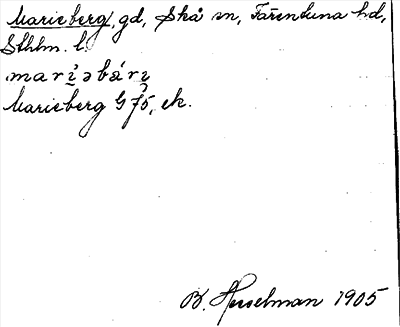 Marieberg, gd, Skå sn, Färentuna hd,
Sthlm. l.
Marieberg G 75, ek.
B. Hesselman 1905